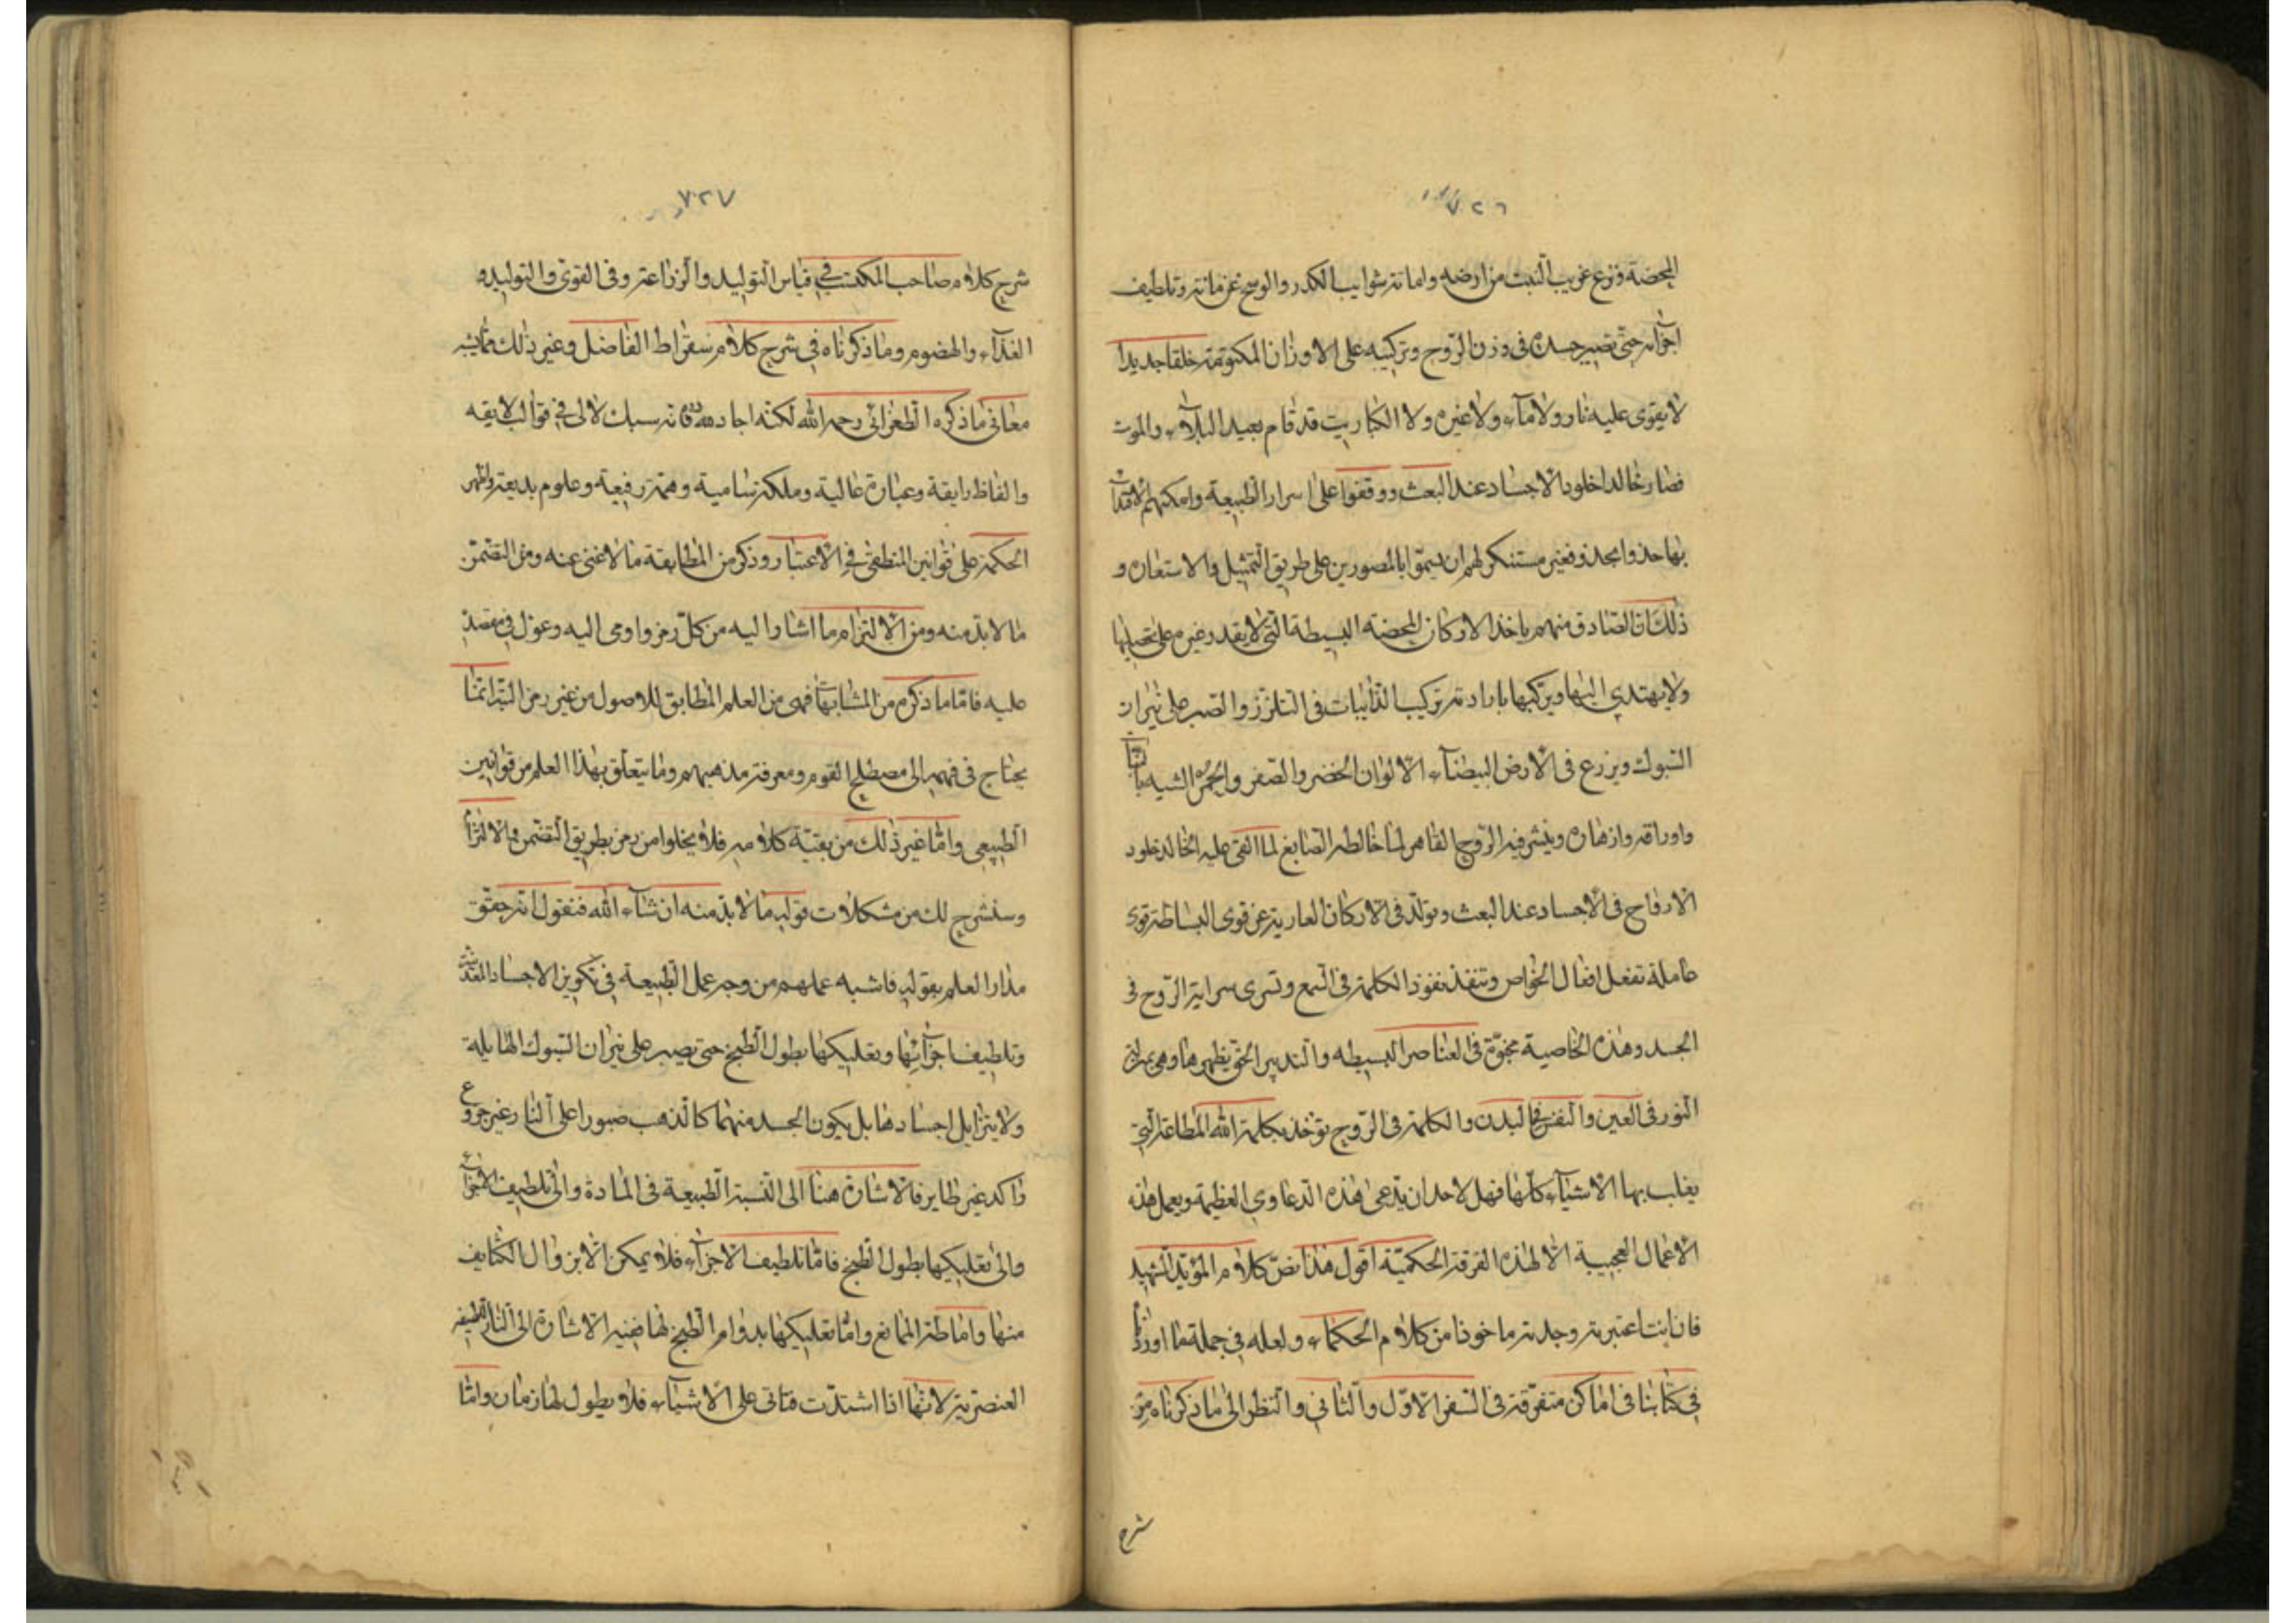 ٧٢٦
المحضة ونزع غريب النبت من ارضه واماتة شوايب الكدر والوسخ عن مائه وتلطيف
اجزآئه حتى تصير جسده فى وزن الروح وتركيبه على الاوزان المكتومة خلقا جديدا
لا يقوى عليه نار ولا مآء ولا غيره ولا الكباريت قد قام بعيد البلآء والموت
فصار خالدا خلود الاجساد عند البعث ووقفوا على اسرار الطبيعة وامكنهم الاقتدآء
بها حذوا بحذو فغير مستنكر لهم ان يسمّوا بالمصورين على طريق التمثيل والاستعارة و
ذلك ان الصادق منهم ياخذ الاركان المحضه البسيطة التى لا يقدر غيرهم على تحصيلها
ولا يهتدى اليها ويركبها بارادته تركيب الذائبات فى التلزز والصبر على نيران
السبوك ويزرع فى الارض البيضآء الالوان الخضر والصفر والحمر الشبيه بالنبات
واوراقه وازهاره وينشر فيه الروح القاهر لما خالطه الصابغ لما القى عليه الخالد خلود
الارواح فى الاجساد عند البعث ويولّد فى الاركان العارية عن قوى البساطة قوى
عاملة تفعل افعال الخواص وتنفذ نفوذ الكلمة فى السمع وتسرى سراية الروح فى
الجسد وهذه الخاصية مخبوّة فى العناصر البسيطه والتدبير الحق يظهرها وهى بمنزلة
النور فى العين والنفس فى البدن والكلمة فى الروح يؤخذ بكلمة الله المطاعة التى
يغلب بها الاشيآء كلها فهل لاحد ان يدعى هذه الدعاوى العظيمة ويعمل هذه
الاعمال العجيبة الا لهذه الفرقة الحكميّة اقول هذا نصّ كلام المؤيد الشهيد
فان انت اعتبرته وجدته ماخوذا من كلام الحكمآء ولعله فى جملة ما اوردناه
فى كتابنا فى اماكن متفرّقة فى السفر الاوّل والثانى والنظر الى ما ذكرناه من
شرح
٧٢٧
شرح كلام صاحب المكتسب فى قياس التوليد والزراعة وفى القوى والتوليد و
الغذآء والهضوم وما ذكرناه فى شرح كلام سقراط الفاضل وغير ذلك مما يشبه
معانى ما ذكره الطغرائى رحمه الله لكنّه اجاد فانه سبك لآلى فى قوالب لايقه
والفاظ رايقة وعبارة عالية وملكة سامية وهمّة رفيعة وعلوم بديعة واظهر
الحكمة على قوانين المنطقى فى الاعتبار وذكر من المطابقة ما لا غنى عنه ومن التضمّن
ما لا بدّ منه ومن الالتزام ما اشار اليه من كلّ رمز واومى اليه وعوّل فى مقصده
عليه فامّا ما ذكره من المشابهات فهى من العلم المطابق للاصول من غير رمز البتّة انما
يحتاج فى فهمه الى مصطلح القوم ومعرفة مذهبهم وما يتعلّق بهذا العلم من قوانين
الطبيعى وامّا غير ذلك من بقيّة كلامه فلا يخلوا من رمز بطريق التضمن والالتزام
وسنشرح لك من مشكلات قوله ما لا بدّ منه ان شآء الله فنقول انه حقّق
مدار العلم بقوله فاشبه عملهم من وجه عمل الطبيعة فى تكوين الاجساد المعدنية
وتلطيف اجزآئها وتعليكها بطول الطبخ حتى يصبر على نيران السبوك الهايلة
ولا يتزايل اجسادها بل يكون الجسد منهما كالذهب صبورا على النار غير جزوع
واكد غير طاير فالاشارة هنا الى النسبة الطبيعة فى المادة والى تلطيف الاجزآء
والى تعليكها بطول الطبخ فامّا تلطيف الاجزآء فلا يمكن الا بزوال الكثايف
منها واماطة الممانع وامّا تعليكها بدوام الطبخ لها ففيه الاشارة الى النار اللطيفه
العنصرية لانها اذا اشتدّت فتاتى على الاشيآء فلا يطول لها زمان وامّا